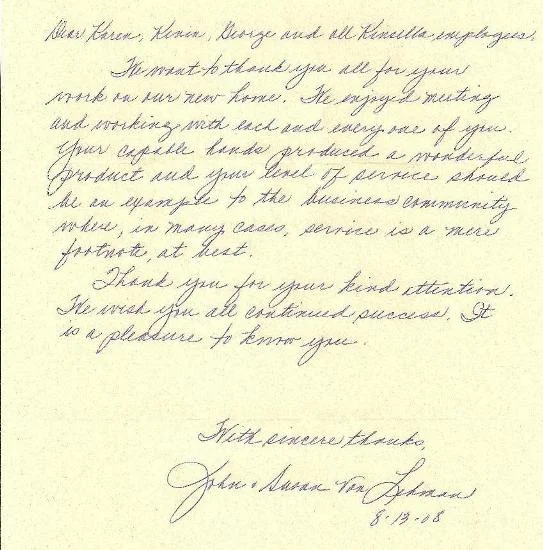 Dear Karen, Kevin, George and all Kinsella employees,
We want to thank you all for your
work on our new home. We enjoy'd meeting
and working with each and every one of you.
Your capable hands produced a wonderful
product and your level of service should
be an example to the business community
where, in many cases, service is a mere
footnote, at best.
Thank you for your kind attention.
We wish you all continued success. It
is a pleasure to know you.
With sincere thanks,
John & Susan Von Lehman
8-13-08